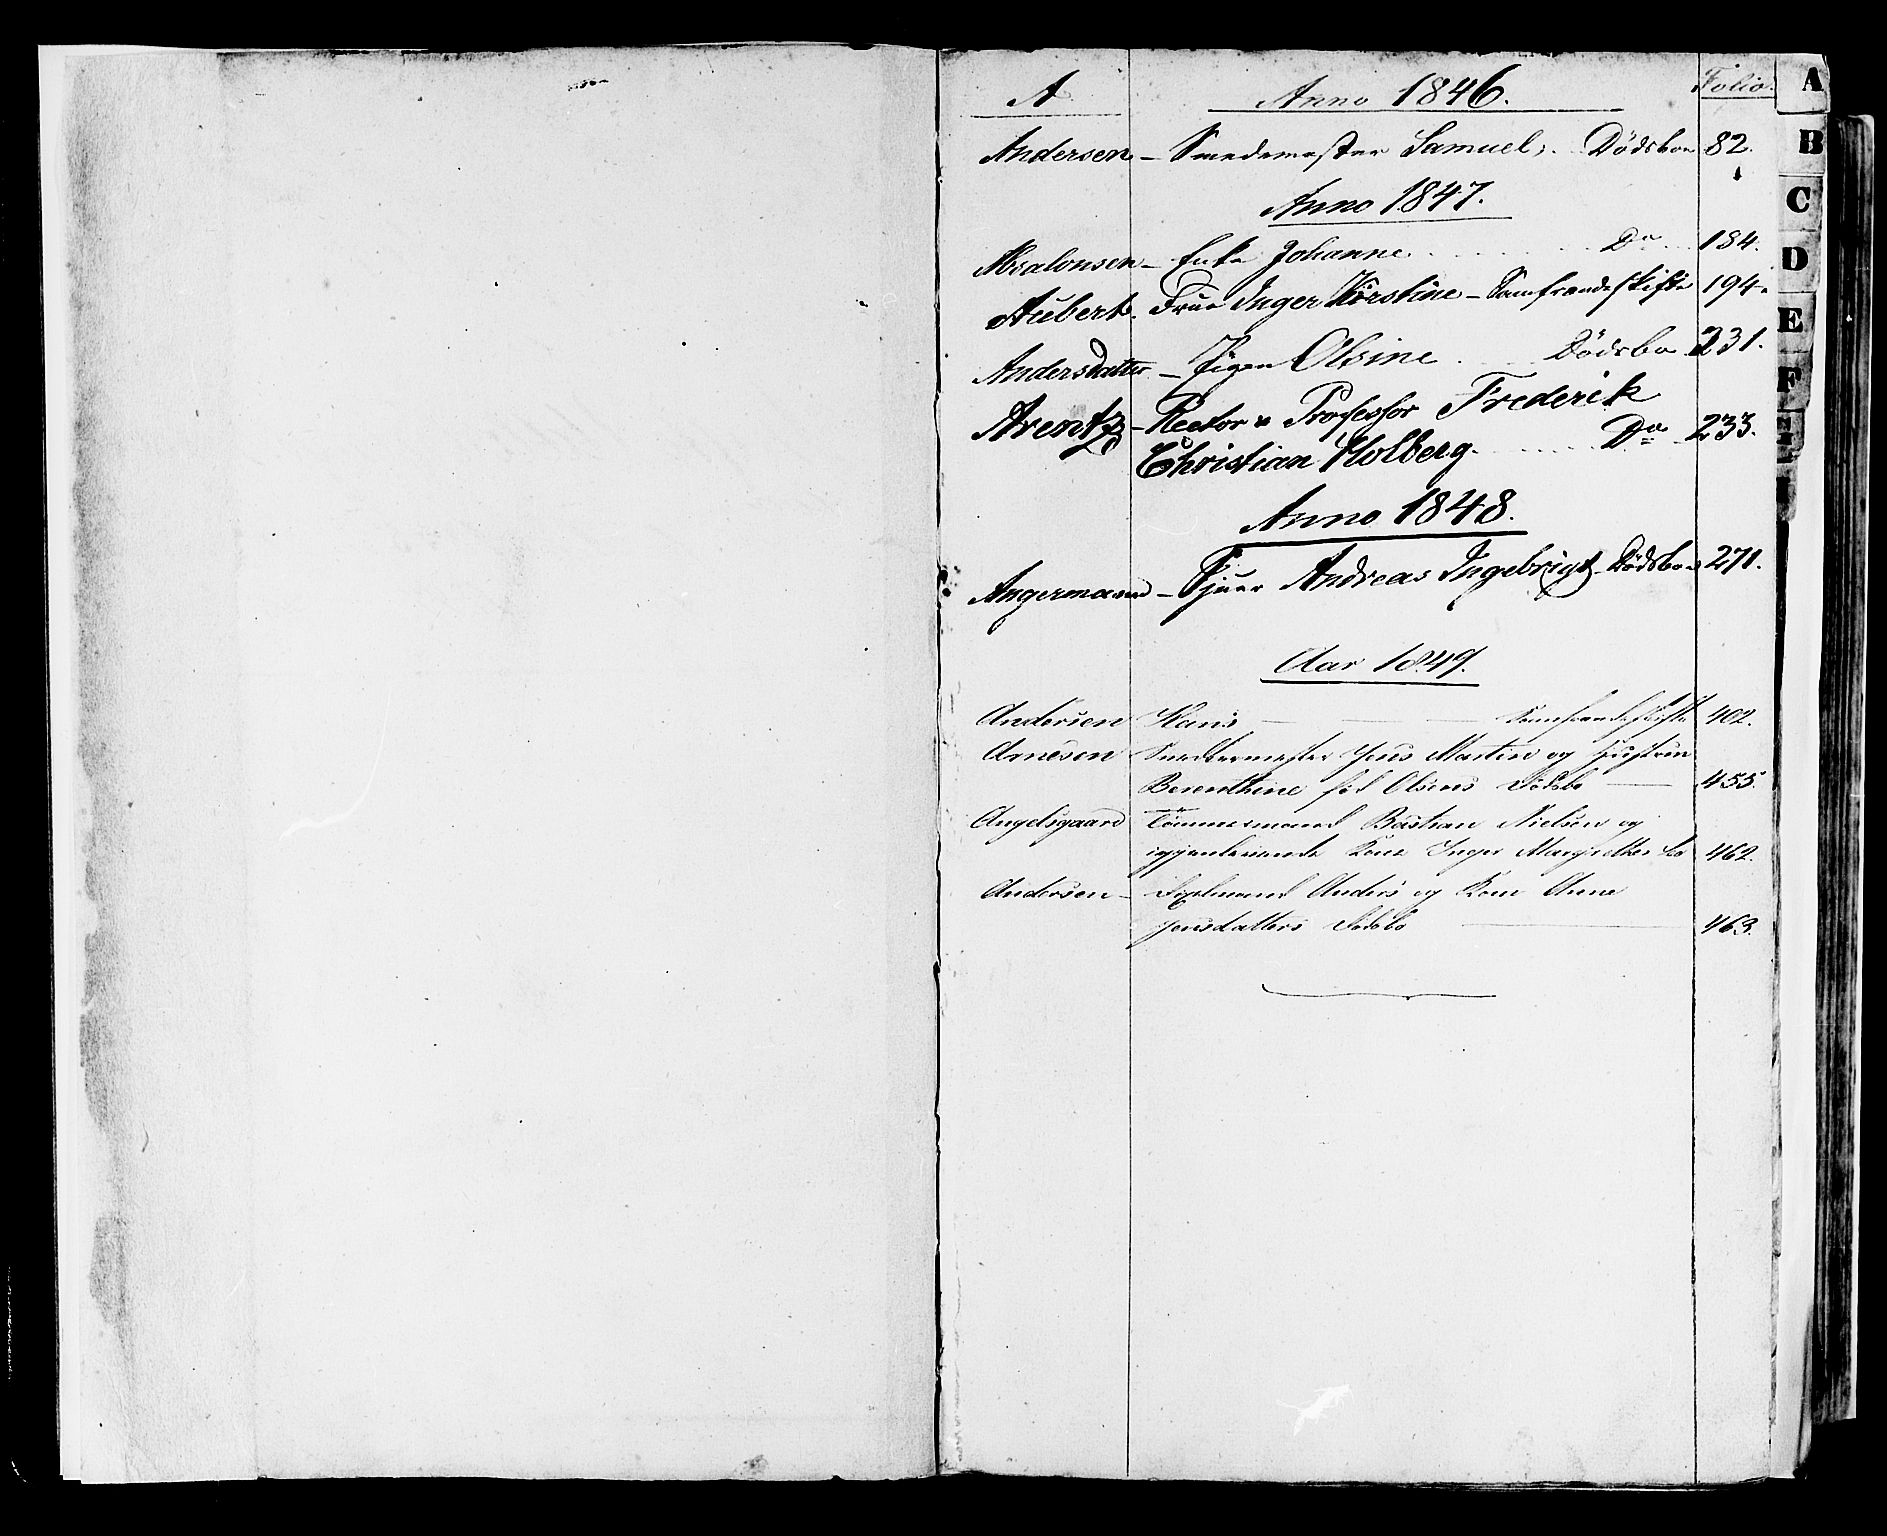 A Anno 1846. Folio.
Andersen – Smedemester Samuel, Dödsboe 82.
Anno 1847.
Absalonsen – Enke Johanne Do 184.
Aubert. Frue Inger Kirstine – Samfrændeskifte 194.
Andersdatter – Pigen Olsine Dödsbo 231.
Arentz – Rector & Professor Frederik
Christian Holberg Do 233.
Anno 1848.
Angermann – Andreas Ingebrigt – Dödsboe 271.
Aar 1849.
Andersen Hans Samfrændeskifte 402.
Arnesen Snedkermester Jens Martin og Hustrue
Berenthine föd Olsens Dödsbo 455.
Angelsgaard Tömmermand Bastian Nielsen og
igjenlevende Kone Inger Margrethes bo 462.
Andersen – Anders og Kone Anne
Jensdatters Dödsbo 463.
A
B
C
D
E
F